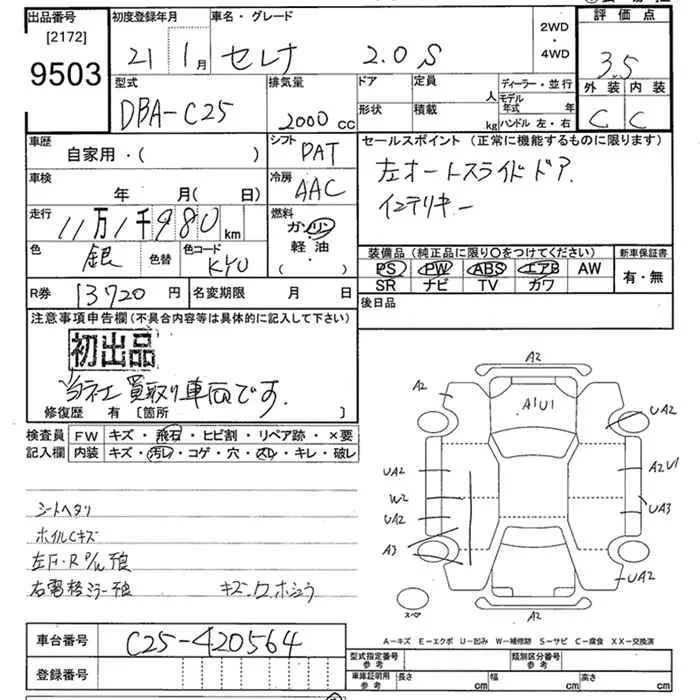 出品番号
[2172]
9503
初度登録年月
21 1月
車名・グレード
セレナ 2.0 S
2WD
・
4WD
評価点
3.5
外装 内装
C C
型式
DBA-C25
排気量
2000 cc
ドア
形状
定員
人
積載
kg
ディーラー・並行
モデル年式 年
ハンドル 左・右
車歴
自家用・( )
シフト
PAT
セールスポイント(正常に機能するものに限ります)
左オートスライドドア.
インテリキー
車検
年 月( 日)
冷房
AAC
走行
11万1千980 km
燃料
ガソリン
軽・油
・( )
色
銀
色替
色コード
KY0
装備品(純正品に限り○をつけてください)
PS PW ABS エアB AW
SR ナビ TV カワ
新車保証書
有・無
R券
13720 円
名変期限 月 日
後日品
注意事項申告欄(不具合内容等は具体的に記入して下さい)
初出品
当社買取り車両です.
修復歴 有 [箇所 ]
検査員
記入欄
FW キズ・飛石・ヒビ割・リペア跡・×要
内装 キズ・汚レ・コゲ・穴・スレ・キレ・破レ
シートヘタリ
ホイルCキズ
左F・R
右電格ミラー不良 キズ・凹ホショウ
A2
A2
A1U1
UA2
UA2
A2U1
W2
UA3
UA2
A3
UA2
A2
スペア
A-キズ E-エクボ U-凹み W-補修跡 S-サビ C-腐食 XX-交換済
車台番号
C25-420564
登録番号
型式指定番号
参考
類別区分番号
参考
車庫証明用
参考
長さ cm
幅 cm
高さ cm